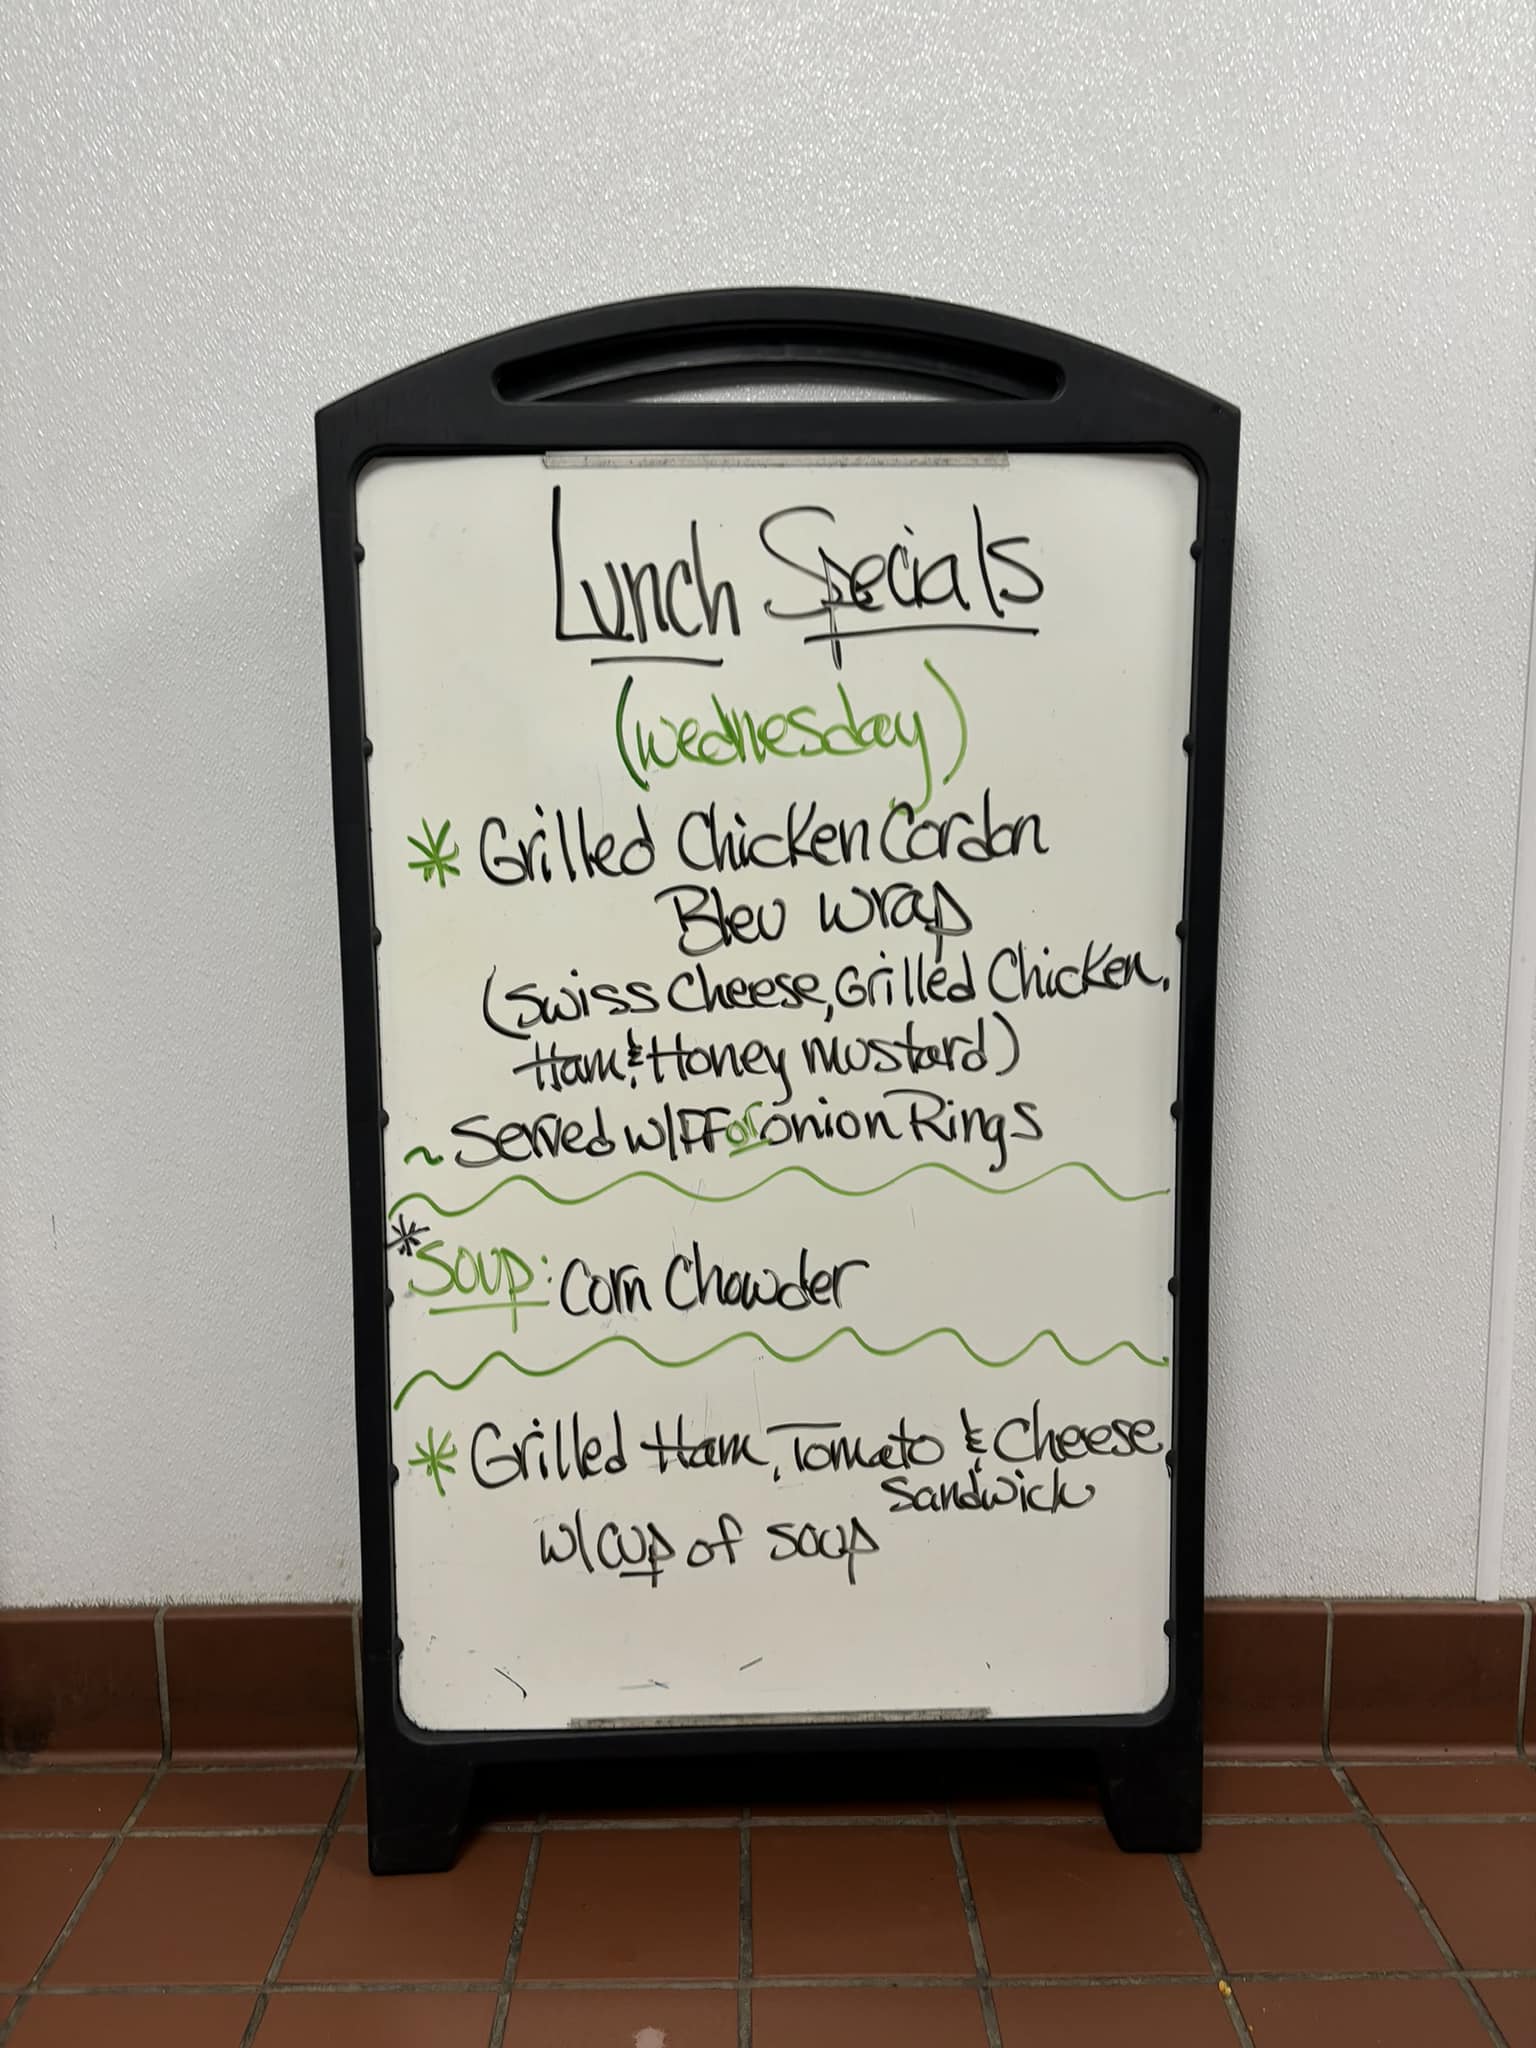 Lunch Specials
(Wednesday)
* Grilled Chicken Cordon
Bleu Wrap
(Swiss Cheese, Grilled Chicken,
Ham & Honey Mustard)
~ Served w/FF or Onion Rings
* Soup: Corn Chowder
* Grilled Ham, Tomato & Cheese
Sandwich
w/cup of soup